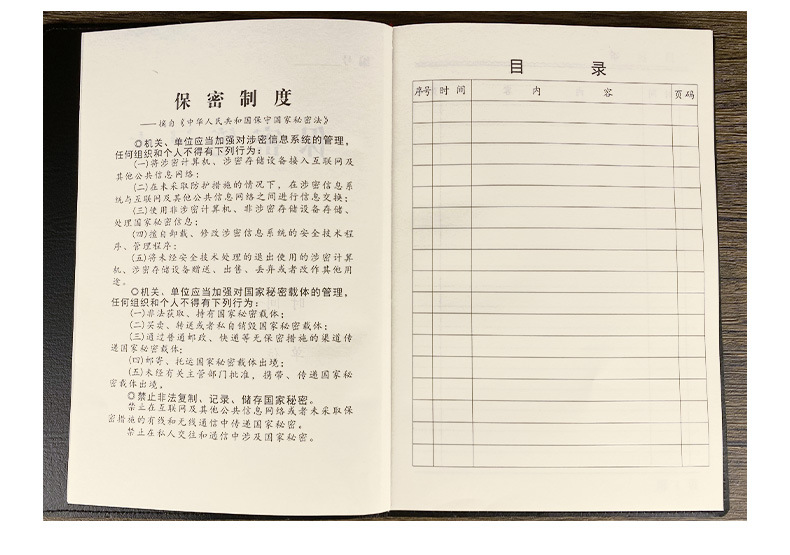 保密制度
——摘自《中华人民共和国保守国家秘密法》
◎机关、单位应当加强对涉密信息系统的管理，
任何组织和个人不得有下列行为：
(一)将涉密计算机、涉密存储设备接入互联网及
其他公共信息网络；
(二)在未采取防护措施的情况下，在涉密信息系
统与互联网及其他公共信息网络之间进行信息交换；
(三)使用非涉密计算机、非涉密存储设备存储、
处理国家秘密信息；
(四)擅自卸载、修改涉密信息系统的安全技术程
序、管理程序；
(五)将未经安全技术处理的退出使用的涉密计算
机、涉密存储设备赠送、出售、丢弃或者改作其他用
途。
◎机关、单位应当加强对国家秘密载体的管理，
任何组织和个人不得有下列行为：
(一)非法获取、持有国家秘密载体；
(二)买卖、转送或者私自销毁国家秘密载体；
(三)通过普通邮政、快递等无保密措施的渠道传
递国家秘密载体；
(四)邮寄、托运国家秘密载体出境；
(五)未经有关主管部门批准，携带、传递国家秘
密载体出境。
◎禁止非法复制、记录、储存国家秘密。
禁止在互联网及其他公共信息网络或者未采取保
密措施的有线和无线通信中传递国家秘密。
禁止在私人交往和通信中涉及国家秘密。
目录
序号 时间 内容 页码